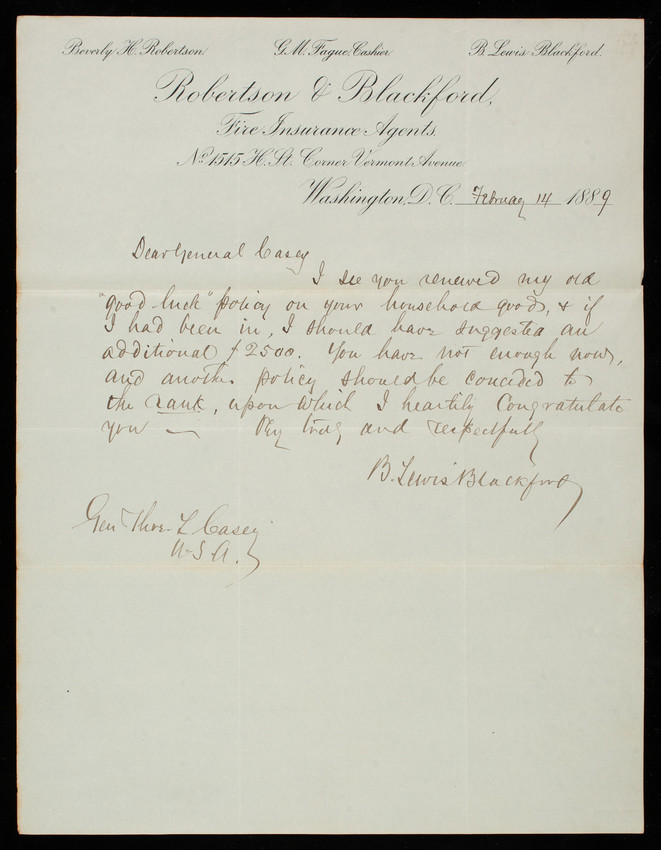 Beverly H. Robertson. G.M. Fague, Cashier B. Lewis Blackford.
Robertson & Blackford,
Fire Insurance Agents.
No. 1515 H. St. Corner Vermont Avenue.
Washington, D.C. February 14 1889
Dear General Casey
I see you renewed my old
"good luck" policy on your household goods, & if
I had been in, I should have suggested an
additional $2500. You have not enough now,
and another policy should be conceded to
the rank, upon which I heartily Congratulate
you — Very truly and respectfully
B. Lewis Blackford
Gen Thos. L Casey
U.S.A.